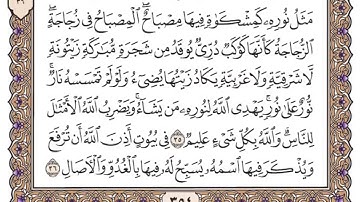 مَثَلُ نُورِهِۦ كَمِشْكَوٰةٍ فِيهَا مِصْبَاحٌ ۖ ٱلْمِصْبَاحُ فِى زُجَاجَةٍ ۖ
ٱلزُّجَاجَةُ كَأَنَّهَا كَوْكَبٌ دُرِّىٌّ يُوقَدُ مِن شَجَرَةٍ مُّبَـٰرَكَةٍ زَيْتُونَةٍ
لَّا شَرْقِيَّةٍ وَلَا غَرْبِيَّةٍ يَكَادُ زَيْتُهَا يُضِىٓءُ وَلَوْ لَمْ تَمْسَسْهُ نَارٌ ۚ
نُّورٌ عَلَىٰ نُورٍ ۗ يَهْدِى ٱللَّهُ لِنُورِهِۦ مَن يَشَآءُ ۚ وَيَضْرِبُ ٱللَّهُ ٱلْأَمْثَـٰلَ
لِلنَّاسِ ۗ وَٱللَّهُ بِكُلِّ شَىْءٍ عَلِيمٌ ٣٥ فِى بُيُوتٍ أَذِنَ ٱللَّهُ أَن تُرْفَعَ
وَيُذْكَرَ فِيهَا ٱسْمُهُۥ يُسَبِّحُ لَهُۥ فِيهَا بِٱلْغُدُوِّ وَٱلْـَٔاصَالِ ٣٦
٣٥٤